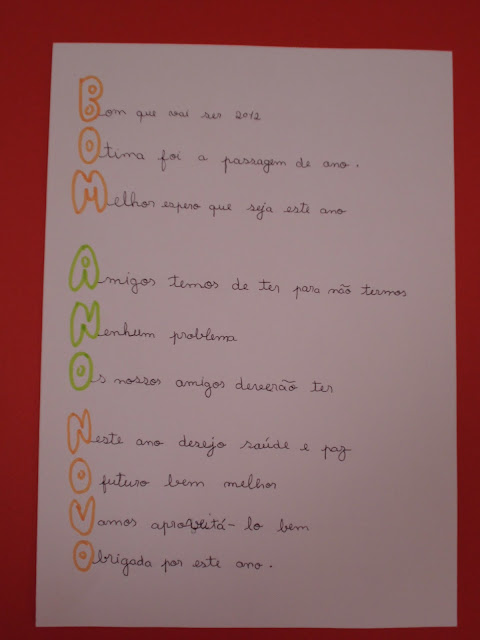 Bom que vai ser 2012
Otima foi a passagem de ano.
Melhor espero que seja este ano
Amigos temos de ter para não termos
Nenhum problema
Os nossos amigos deverão ter
Neste ano desejo saúde e paz
O futuro bem melhor
Vamos aproveitá-lo bem
Obrigada por este ano.